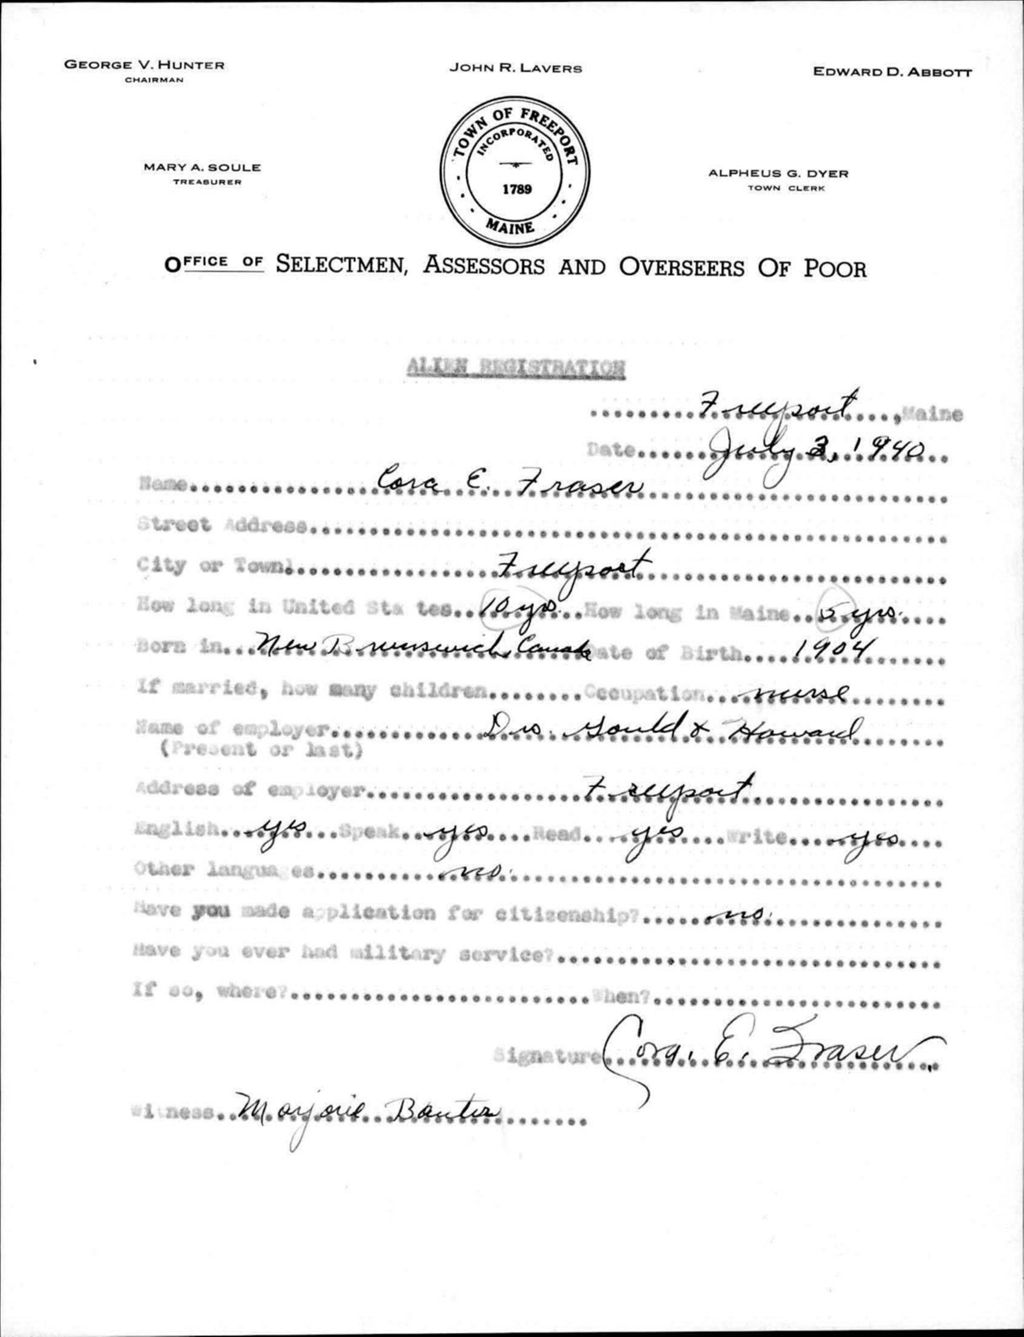 GEORGE V. HUNTER
CHAIRMAN
JOHN R. LAVERS
EDWARD D. ABBOTT
MARY A. SOULE
TREASURER
TOWN OF FREEPORT
INCORPORATED
1789
MAINE
ALPHEUS G. DYER
TOWN CLERK
OFFICE OF SELECTMEN, ASSESSORS AND OVERSEERS OF POOR
ALIEN REGISTRATION
Freeport, Maine
Date July 3, 1940
Name Cora E. Fraser
Street Address
City or Town Freeport
How long in United Sta tes 10 yrs. How long in Maine 5 yrs.
Born in New Brunswich, Canada Date of Birth 1904
If married, how many children Occupation nurse
Name of employer Drs. Gould & Howard
(Present or last)
Address of employer Freeport
English yes Speak yes Read yes Write yes
Other languages no.
Have you made application for citizenship? no.
Have you ever had military service?
If so, where? When?
Signature Cora. E. Fraser.
Witness Marjorie